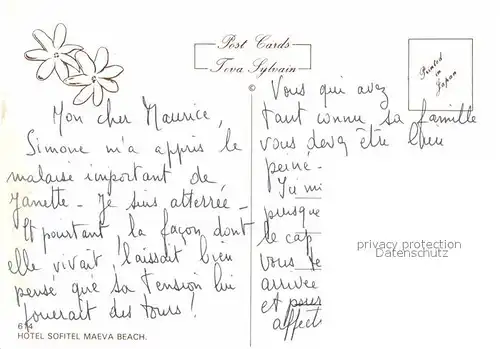 Post Cards
Teva Sylvain
Printed
in
Japan
©
Mon cher Maurice,
Simone m'a appris le
malaise important de
Janette - Je suis atterrée -
Et pourtant la façon dont
elle vivait laissait bien
pensé que sa tension lui
jouerait des tours !
Vous qui avez
tant connu sa famille
vous devez être bien
peiné -
presque
le cap
vous
arrivée
et
affect
privacy protection
Datenschutz
614
HOTEL SOFITEL MAEVA BEACH.